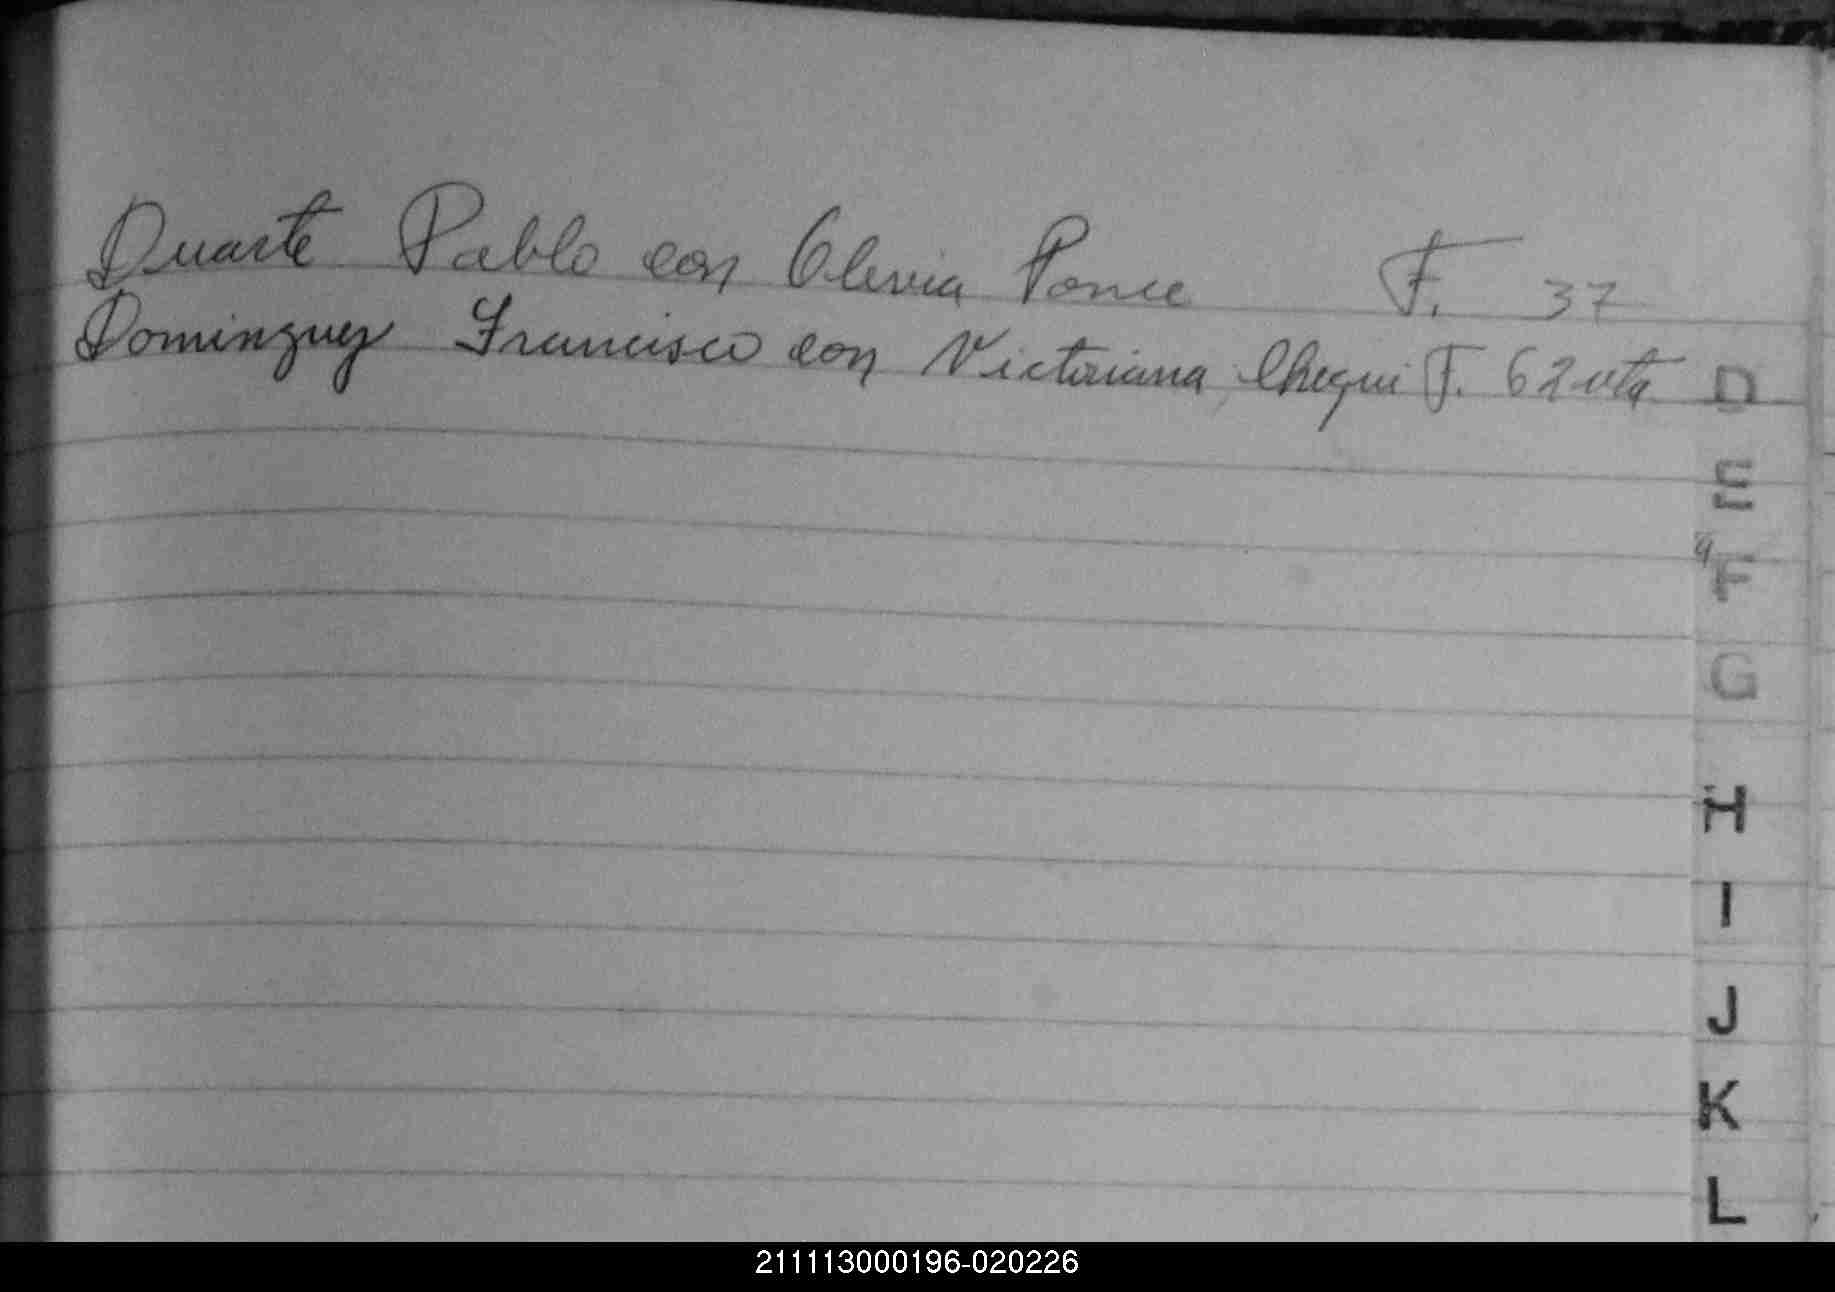 Duarte Pablo con Olevia Ponce F. 37
Dominguez Francisco con Victoriana Chequi F. 62 vta
D
E
F
G
H
I
J
K
L
211113000196-020226